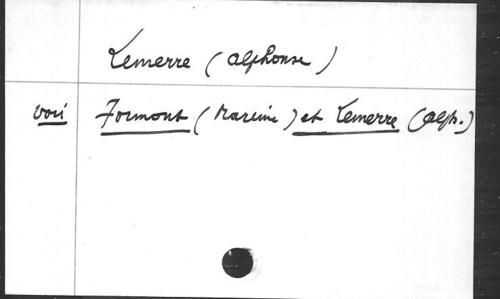 Lemerre (Alphonse)
voir Formont (Maxime) et Lemerre (Alph.)